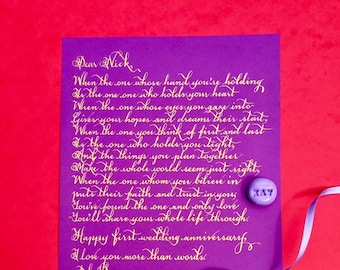 Dear Nick,
When the one whose hand you're holding
Is the one who holds your heart
When the one whose eyes you gaze into
Gives your hopes and dreams their start,
When the one you think of first and last
Is the one who holds you tight,
And the things you plan together
Make the whole world seem just right,
When the one whom you believe in
puts their faith and trust in you,
You've found the one and only love
You'll share your whole life through.
Happy first wedding anniversary,
I love you more than words.